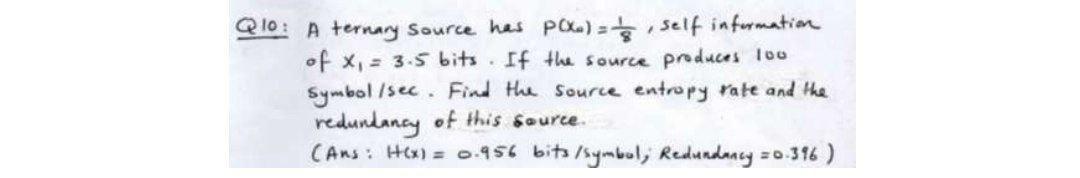 Q10: A ternary source has P(X₀) = 1/8 , self information
of X₁ = 3.5 bits . If the source produces 100
symbol /sec . Find the source entropy rate and the
redundancy of this source.
(Ans : H(x) = 0.956 bits /symbol; Redundancy = 0.396 )